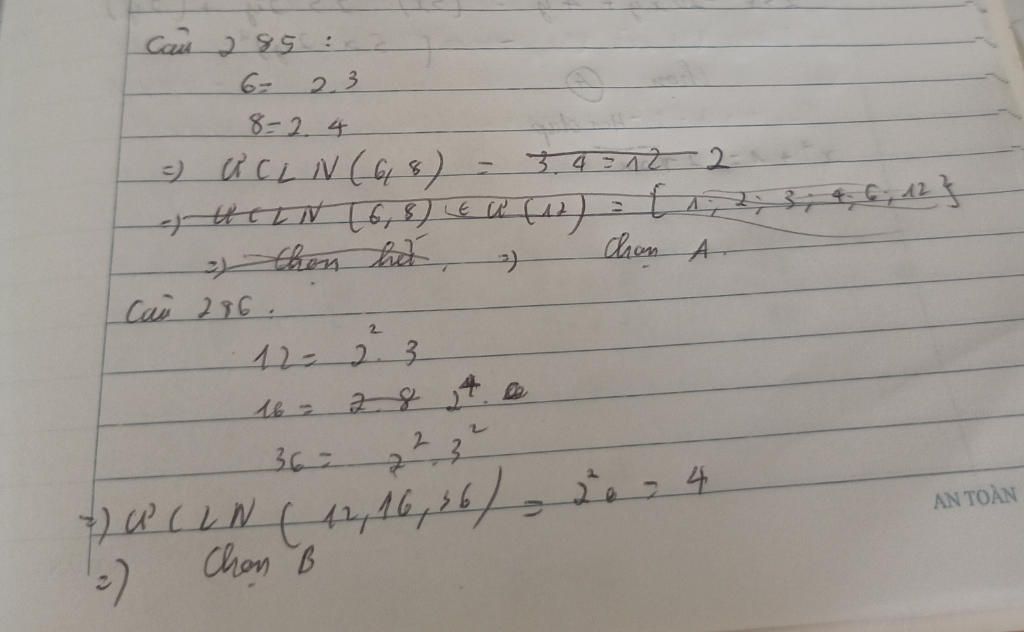 Câu 285 :
6 = 2.3
8 = 2.4
=) ƯCLN(6,8) = 3.4 = 12 2
=) ƯCLN(6,8) ∈ Ư(12) = { 1; 2; 3; 4; 6; 12 }
=) Chọn hết. =) Chọn A.
Câu 286.
12 = 2². 3
16 = 2.8 2⁴.
36 = 2². 3²
=) ƯCLN(12,16,36) = 2² = 4
AN TOÀN
=) Chọn B